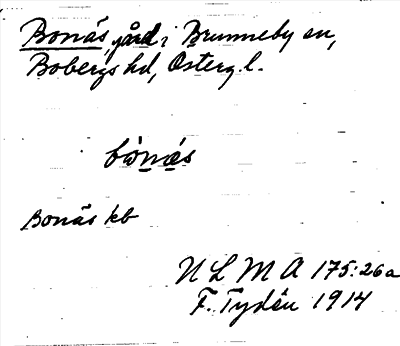 Bonäs, gård i Brunneby sn,
Bobergs hd, Österg. l.
bònæ̀s
Bonäs kb
ULMA 175:26a
F. Tydén 1914